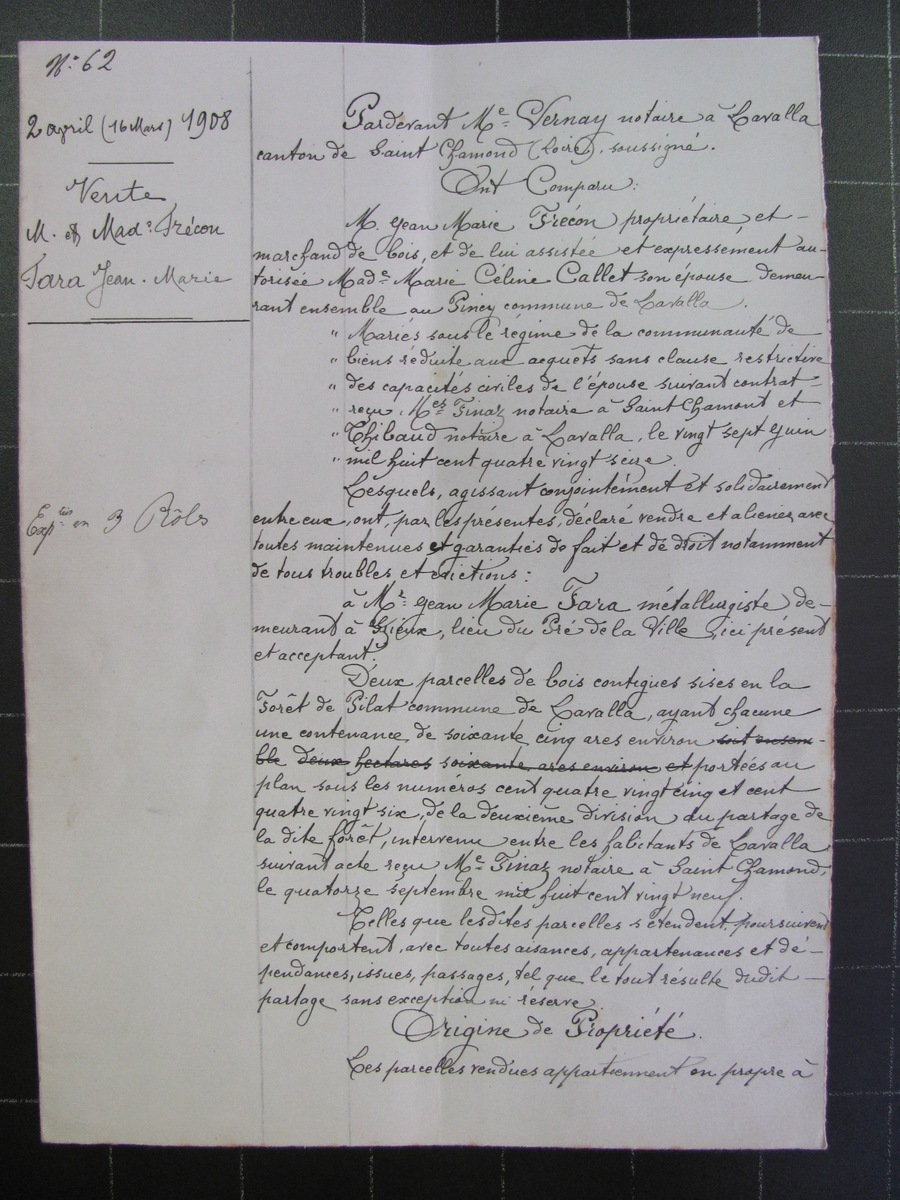 N° 62
2 april (16 Mars) 1908
Vente
M. et Made Frécon
Fara Jean-Marie
Expéd.on en 3 Rôles
Pardevant Me Vernay notaire à Lavalla
canton de Saint Chamond (Loire), soussigné.
Ont Comparu:
M. Jean Marie Frécon propriétaire, et
marchand de bois, et de lui assistée et expressément au-
torisée Made Marie Céline Callet son épouse demeu-
rant ensemble au Piney commune de Lavalla.
" Mariés sous le régime de la communauté de
" biens réduite aux acquêts sans clause restrictive
" des capacités civiles de l'épouse suivant contrat
" reçu Mes Finaz notaire à Saint Chamont et
" Thibaud notaire à Lavalla, le vingt sept Juin
" mil huit cent quatre vingt seize.
Lesquels, agissant conjointement et solidairement
entre eux, ont, par les présentes, déclaré vendre et aliéner avec
toutes maintenues et garanties de fait et de droit notamment
de tous troubles et évictions:
à Mr Jean Marie Fara métallurgiste, de-
meurant à Izieux, lieu du Pré de la Ville, ici présent
et acceptant.
Deux parcelles de bois contigues sises en la
Forêt de Pilat commune de Lavalla, ayant chacune
une contenance de soixante cinq ares environ soit ensem-
ble deux hectares soixante ares environ et portées au
plan sous les numéros cent quatre vingt cinq et cent
quatre vingt six, de la deuxième division du partage de
la dite forêt, intervenu entre les habitants de Lavalla
suivant acte reçu Me Finaz notaire à Saint Chamond,
le quatorze septembre mil huit cent vingt neuf.
Telles que lesdites parcelles s'étendent, poursuivent
et comportent, avec toutes aisances, appartenances et dé-
pendances, issues, passages, tel que le tout résulte dudit
partage sans exception ni réserve.
Origine de Propriété.
Les parcelles vendues appartiennent en propre à